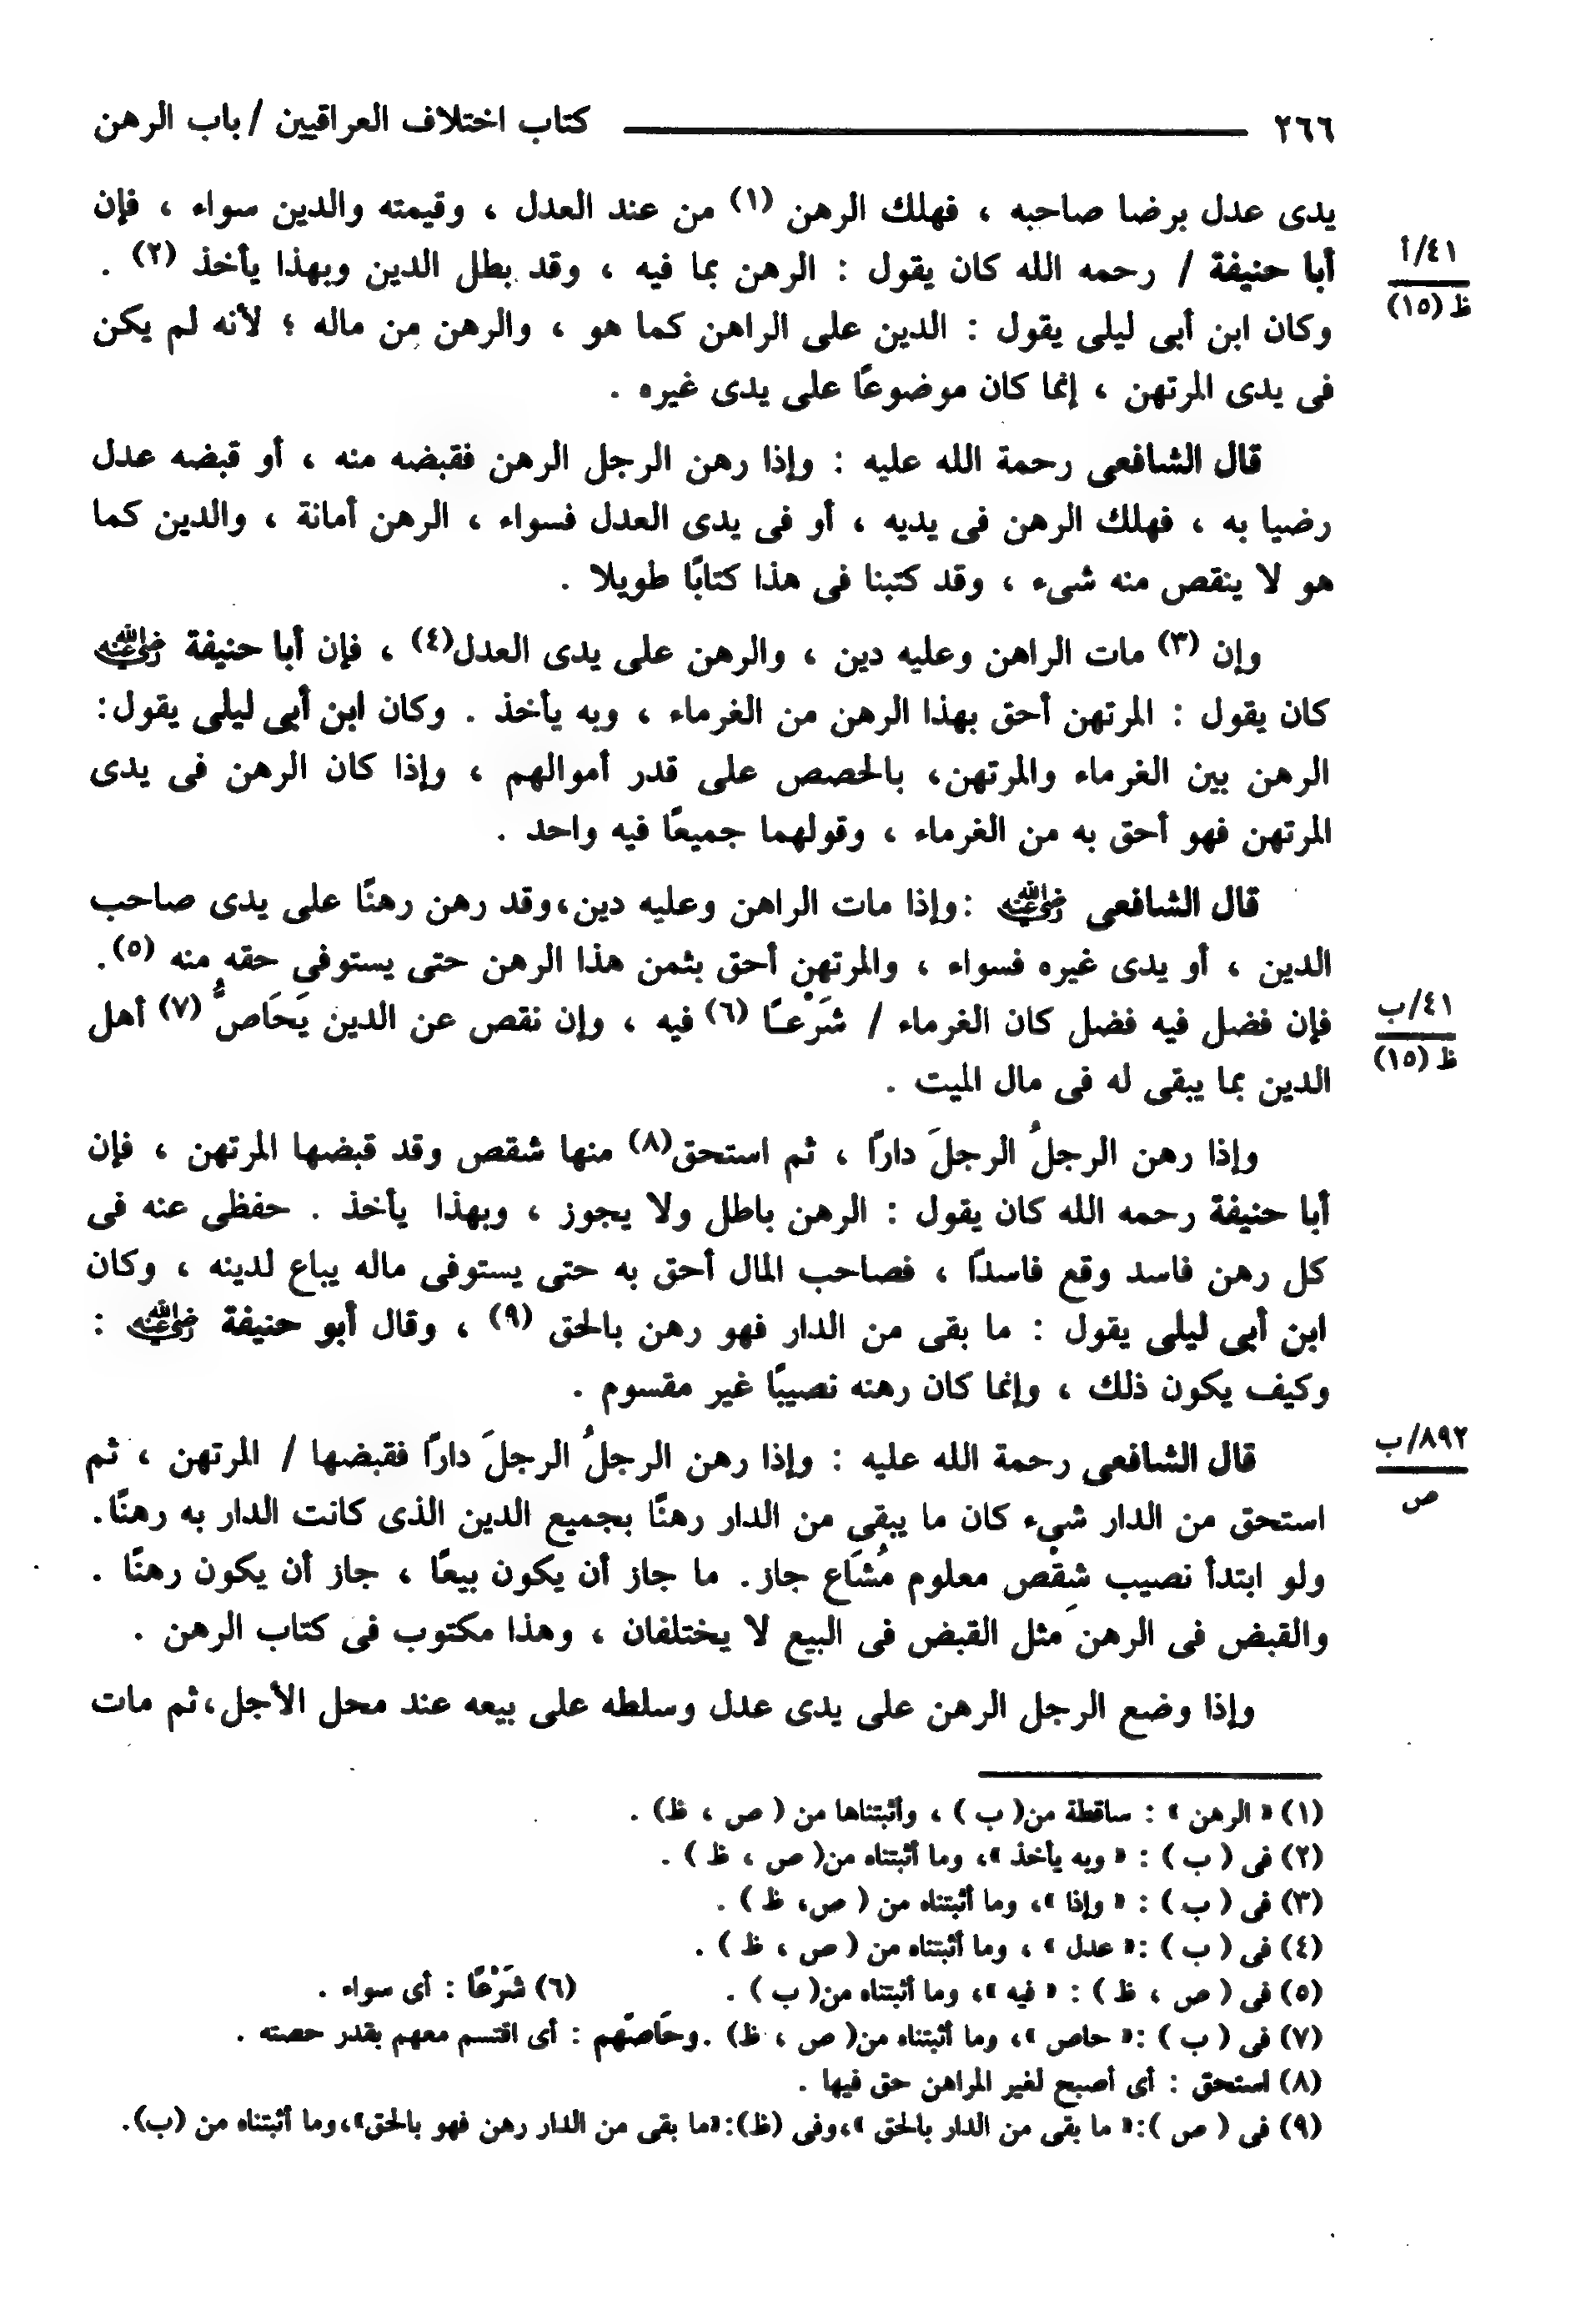 ٢٦٦ كتاب اختلاف العراقيين / باب الرهن
يدى عدل برضا صاحبه ، فهلك الرهن (١) من عند العدل ، وقيمته والدين سواء ، فإن
أبا حنيفة / رحمه الله كان يقول : الرهن بما فيه ، وقد بطل الدين وبهذا يأخذ (٢) .
٤١/أ
ظ (١٥)
وكان ابن أبى ليلى يقول : الدين على الراهن كما هو ، والرهن من ماله ؛ لأنه لم يكن
فى يدى المرتهن ، إنما كان موضوعًا على يدى غيره .
قال الشافعى رحمة الله عليه : وإذا رهن الرجل الرهن فقبضه منه ، أو قبضه عدل
رضيا به ، فهلك الرهن فى يديه ، أو فى يدى العدل فسواء ، الرهن أمانة ، والدين كما
هو لا ينقص منه شىء ، وقد كتبنا فى هذا كتابًا طويلا .
وإن (٣) مات الراهن وعليه دين ، والرهن على يدى العدل(٤) ، فإن أبا حنيفة رضي الله عنه
كان يقول : المرتهن أحق بهذا الرهن من الغرماء ، وبه يأخذ . وكان ابن أبى ليلى يقول:
الرهن بين الغرماء والمرتهن، بالحصص على قدر أموالهم ، وإذا كان الرهن فى يدى
المرتهن فهو أحق به من الغرماء ، وقولهما جميعًا فيه واحد .
قال الشافعى رضي الله عنه :وإذا مات الراهن وعليه دين،وقد رهن رهنًا على يدى صاحب
الدين ، أو يدى غيره فسواء ، والمرتهن أحق بثمن هذا الرهن حتى يستوفى حقه منه (٥).
فإن فضل فيه فضل كان الغرماء / شَرْعـًا (٦) فيه ، وإن نقص عن الدين يَحَاصُّ (٧) أهل
٤١/ب
ظ (١٥)
الدين بما يبقى له فى مال الميت .
وإذا رهن الرجلُ الرجلَ دارًا ، ثم استحق(٨) منها شقص وقد قبضها المرتهن ، فإن
أبا حنيفة رحمه الله كان يقول : الرهن باطل ولا يجوز ، وبهذا يأخذ . حفظى عنه فى
كل رهن فاسد وقع فاسدًا ، فصاحب المال أحق به حتى يستوفى ماله يباع لدينه ، وكان
ابن أبى ليلى يقول : ما بقى من الدار فهو رهن بالحق (٩) ، وقال أبو حنيفة رضي الله عنه :
وكيف يكون ذلك ، وإنما كان رهنه نصيبًا غير مقسوم .
قال الشافعى رحمة الله عليه : وإذا رهن الرجلُ الرجلَ دارًا فقبضها / المرتهن ، ثم
٨٩٢/ب
ص
استحق من الدار شىء كان ما يبقى من الدار رهنًا بجميع الدين الذى كانت الدار به رهنًا.
ولو ابتدأ نصيب شِقْص معلوم مُشَاع جاز. ما جاز أن يكون بيعًا ، جاز أن يكون رهنًا .
والقبض فى الرهن مثل القبض فى البيع لا يختلفان ، وهذا مكتوب فى كتاب الرهن .
وإذا وضع الرجل الرهن على يدى عدل وسلطه على بيعه عند محل الأجل،ثم مات
(١) « الرهن » : ساقطة من( ب ) ، وأثبتناها من ( ص ، ظ) .
(٢) فى ( ب ) : « وبه يأخذ »، وما أثبتناه من( ص ، ظ ) .
(٣) فى ( ب ) : « وإذا »، وما أثبتناه من ( ص، ظ ) .
(٤) فى ( ب ) :« عدل » ، وما أثبتناه من ( ص ، ظ ) .
(٥) فى ( ص ، ظ ) : « فيه »، وما أثبتناه من( ب ) . (٦) شَرْعًا : أى سواء .
(٧) فى ( ب ) :« حاص »، وما أثبتناه من( ص ، ظ) .وحَاصّهم : أى اقتسم معهم بقدر حصته .
(٨) استحق : أى أصبح لغير المراهن حق فيها .
(٩) فى ( ص ):« ما بقى من الدار بالحق »،وفى (ظ):«ما بقى من الدار رهن فهو بالحق»،وما أثبتناه من (ب).